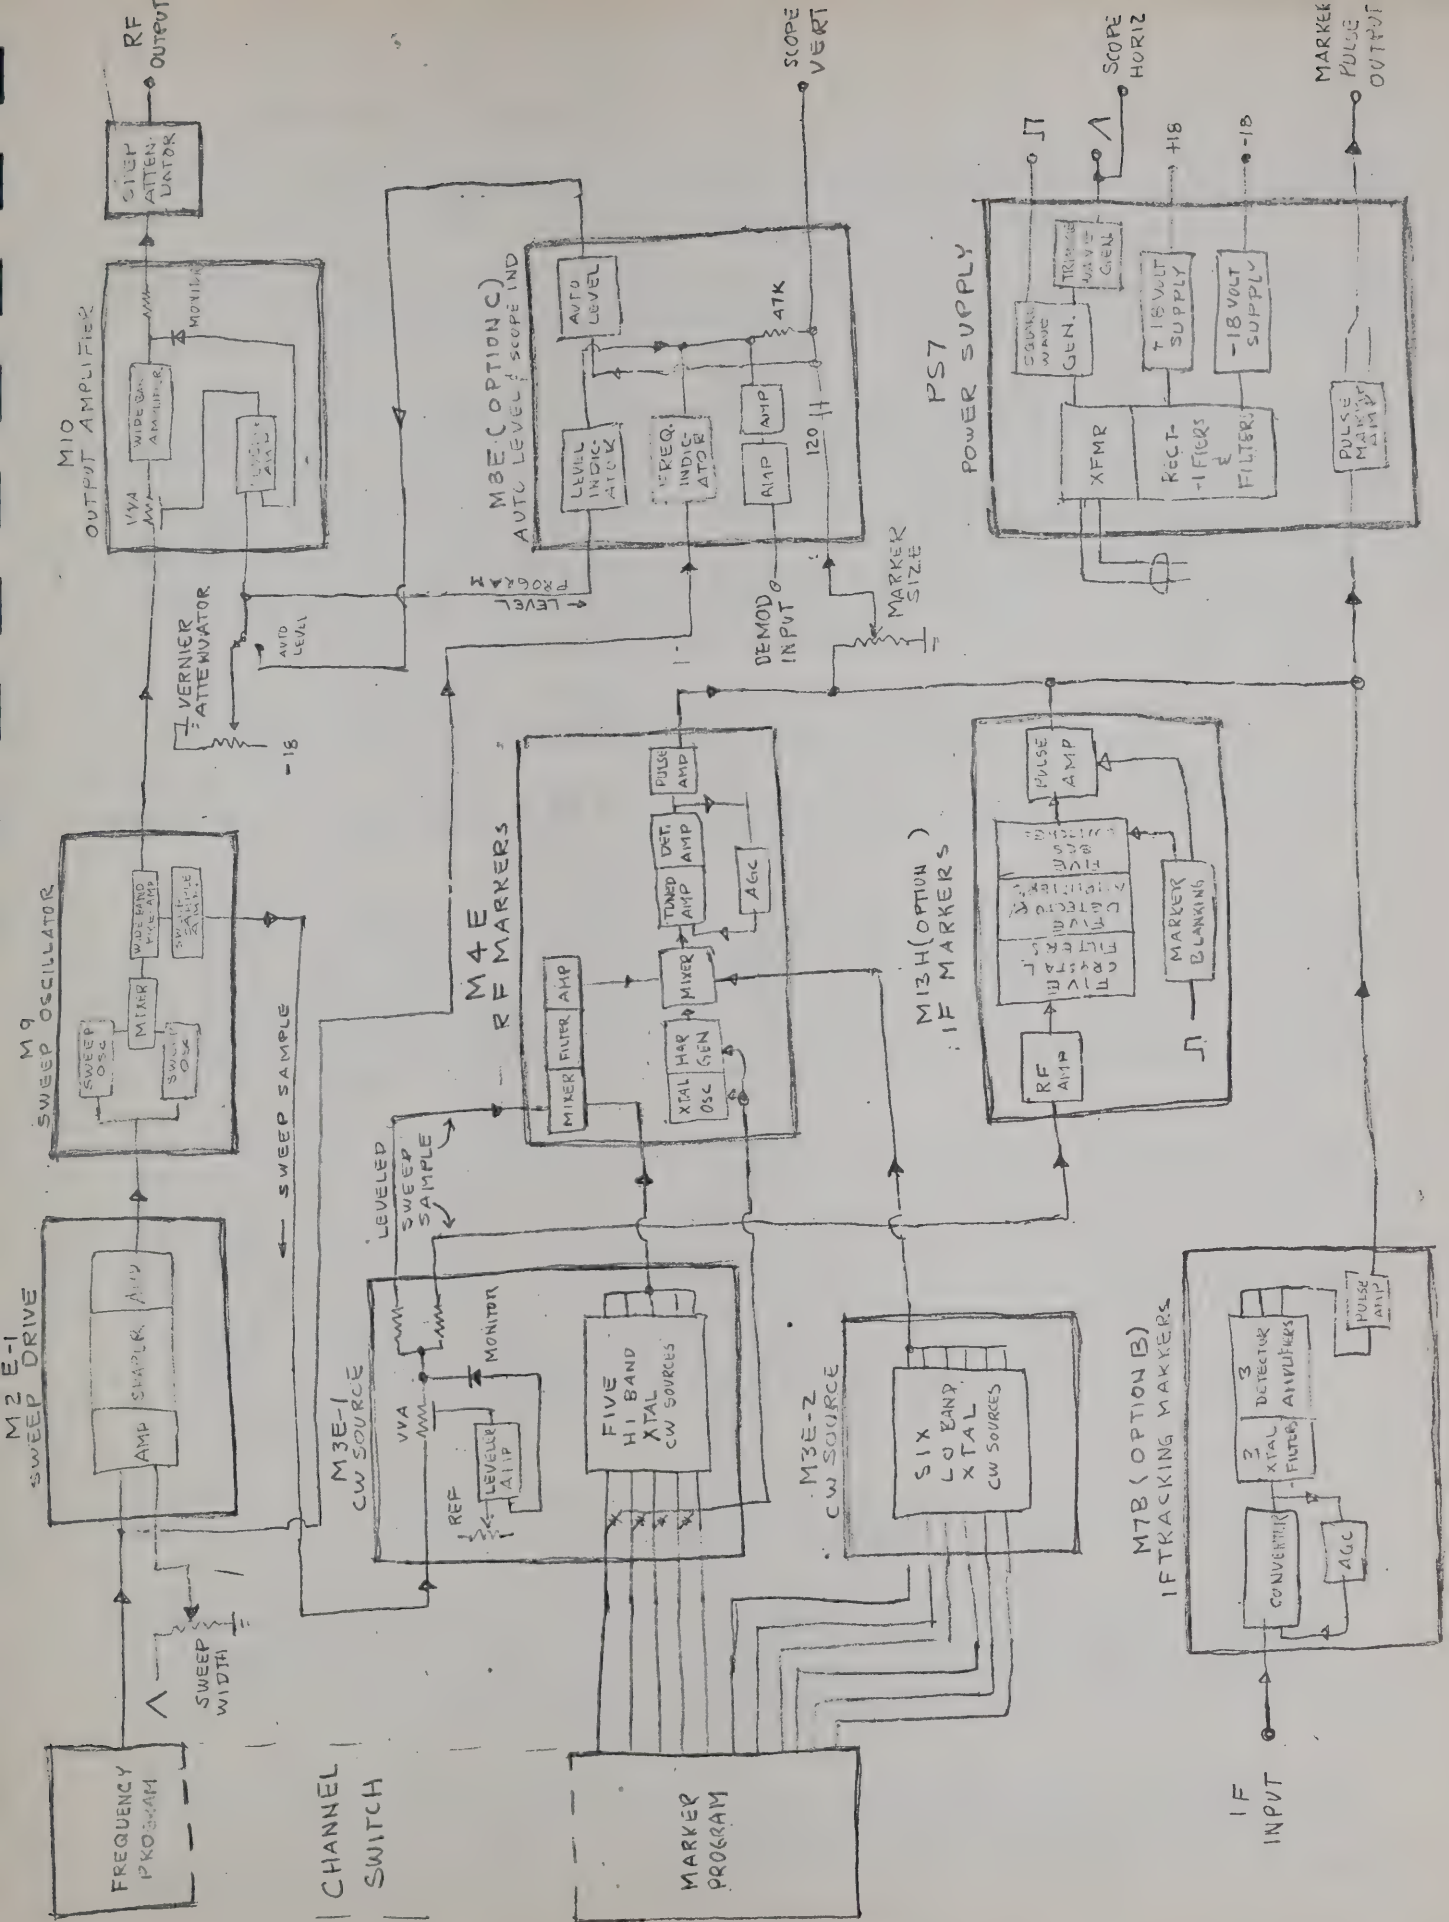 FREQUENCY
PROGRAM
CHANNEL
SWITCH
MARKER
PROGRAM
SWEEP
WIDTH
M2E-1
SWEEP DRIVE
AMP
SHAPER
AMP
M9
SWEEP OSCILLATOR
SWEEP
OSC
SWEEP
OSC
MIXER
WIDE BAND
PRE-AMP
SWEEP
SAMPLE
AMP
← SWEEP SAMPLE
VERNIER
ATTENUATOR
-18
AUTO
LEVEL
M10
OUTPUT AMPLIFIER
VVA
WIDE BAND
AMPLIFIER
MONITOR
STEP
ATTEN-
UATOR
RF
OUTPUT
M3E-1
CW SOURCE
VVA
REF
LEVELER
AMP
MONITOR
FIVE
HI BAND
XTAL
CW SOURCES
LEVELED
SWEEP
SAMPLE
M4E
RF MARKERS
MIXER
FILTER
AMP
XTAL
OSC
HAR
GEN
MIXER
TUNED
AMP
DET.
AMP
PULSE
AMP
AGC
← LEVEL
PROGRAM
M8E (OPTION C)
AUTO LEVEL & SCOPE IND
LEVEL
INDIC-
ATOR
AUTO
LEVEL
FREQ.
INDIC-
ATOR
AMP
AMP
47K
120
DEMOD
INPUT
MARKER
SIZE
SCOPE
VERT
M3E-2
CW SOURCE
SIX
LO BAND
XTAL
CW SOURCES
M13H (OPTION )
IF MARKERS
RF
AMP
PULSE
AMP
MARKER
BLANKING
PS7
POWER SUPPLY
XFMR
RECT-
IFIERS
&
FILTERS
SQUARE
WAVE
GEN.
TRIANGLE
WAVE
GEN
+18 VOLT
SUPPLY
-18 VOLT
SUPPLY
SCOPE
HORIZ
+18
-18
PULSE
MARKER
AMP
MARKER
PULSE
OUTPUT
M7B (OPTION B)
IF TRACKING MARKERS
IF
INPUT
CONVERTER
AGC
3
XTAL
FILTERS
3
DETECTOR
AMPLIFIERS
PULSE
AMP